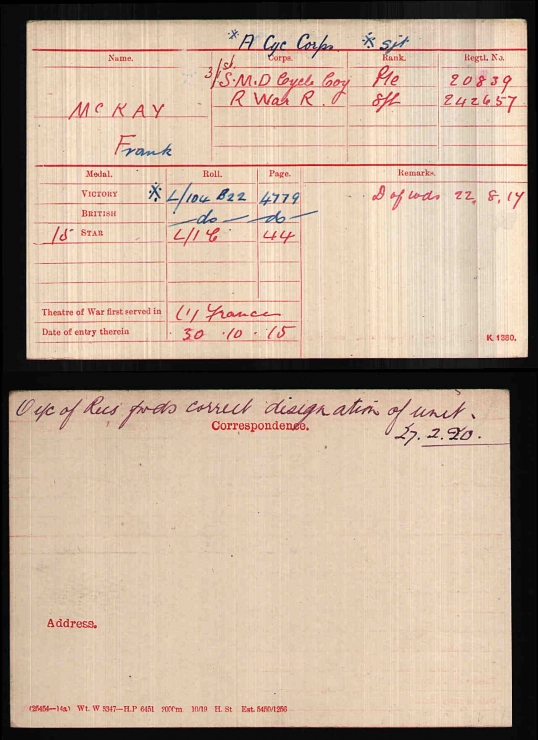 * A Cyc Corps. * Sjt
Name. Corps. Rank. Regtl. No.
3/1st S.M.D Cycle Coy Pte 20839
McKAY R War R. Sjt 242657
Frank
Medal. Roll. Page. Remarks.
VICTORY * L/104 B22 4779 D of wds 22.8.17
BRITISH —do— —do—
15 STAR L/1 C 44
Theatre of War first served in (1) France
Date of entry therein 30.10.15
K. 1380.
O i/c of Recs fwds correct designation of unit.
Correspondence.
27.2.20.
Address.
(25454—14a) Wt. W 5347—H.P 6451 10/19 H. St Est.